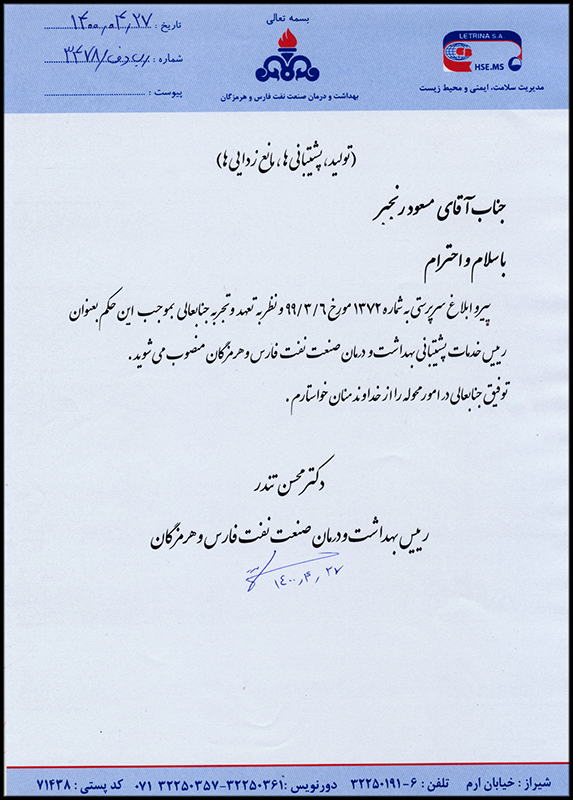 بسمه تعالی
LETRINA S.A
HSE.MS
مدیریت سلامت، ایمنی و محیط زیست
بهداشت و درمان صنعت نفت فارس و هرمزگان
تاریخ : ۱۴۰۰،۰۴،۲۷
شماره : ۳۴۷۸/
پیوست :
(تولید، پشتیبانی ها، مانع زدایی ها)
جناب آقای مسعود رنجبر
با سلام و احترام
پیرو ابلاغ سرپرستی به شماره ۱۳۷۲ مورخ ۹۹/۳/۶ و نظر به تعهد و تجربه جنابعالی بموجب این حکم بعنوان
رییس خدمات پشتیبانی بهداشت و درمان صنعت نفت فارس و هرمزگان منصوب می شوید .
توفیق جنابعالی در امور محوله را از خداوند منان خواستارم .
دکتر محسن تندر
رییس بهداشت و درمان صنعت نفت فارس و هرمزگان
۱۴۰۰,۴,۲۷
شیراز : خیابان ارم تلفن : ۶-۳۲۲۵۰۱۹۱ دورنویس :۳۲۲۵۰۳۶۱-۳۲۲۵۰۳۵۷ ۰۷۱ کد پستی : ۷۱۴۳۸